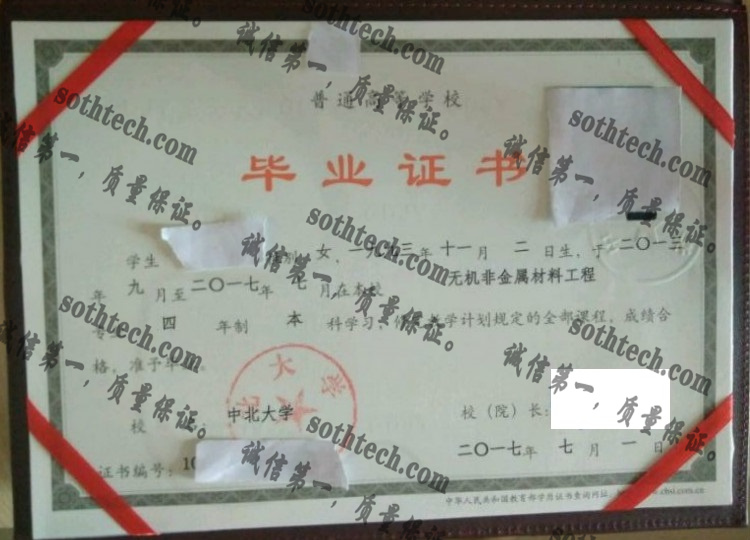 普通高等学校
毕业证书
学生 性别 女，一九九三年 十一月 二 日生，于 二〇一三
年 九 月至 二〇一七年 七 月在本校 无机非金属材料工程
专 四 年制 本 科学习，修 教学计划规定的全部课程，成绩合
格，准予毕
校 中北大学 校（院）长：
二〇一七年 七 月 一 日
证书编号：10
中华人民共和国教育部学历证书查询网址 www.chsi.com.cn
sothtech.com
诚信第一，质量保证。
sothtech.com
诚信第一，质量保证。
sothtech.com
诚信第一，质量保证。
sothtech.com
诚信第一，质量保证。
sothtech.com
诚信第一，质量保证。
sothtech.com
诚信第一，质量保证。